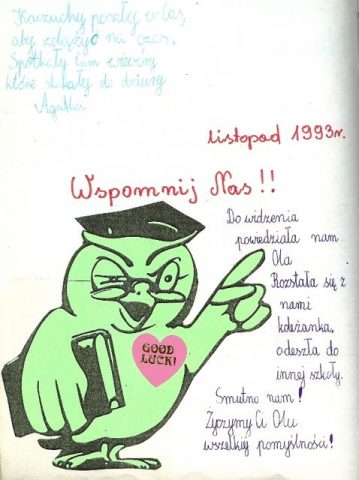 Kaczuchy poszły w las,
aby zdążyć na czas.
Spotkały tam
które skakały do dziury
Agatka
listopad 1993r.
Wspomnij Nas!!
Do widzenia
powiedziała nam
Ola
Rozstała się z
nami
koleżanka,
odeszła do
innej szkoły.
Smutno nam!
Życzymy Ci Olu
wszelkiej pomyślności!
GOOD
LUCK!